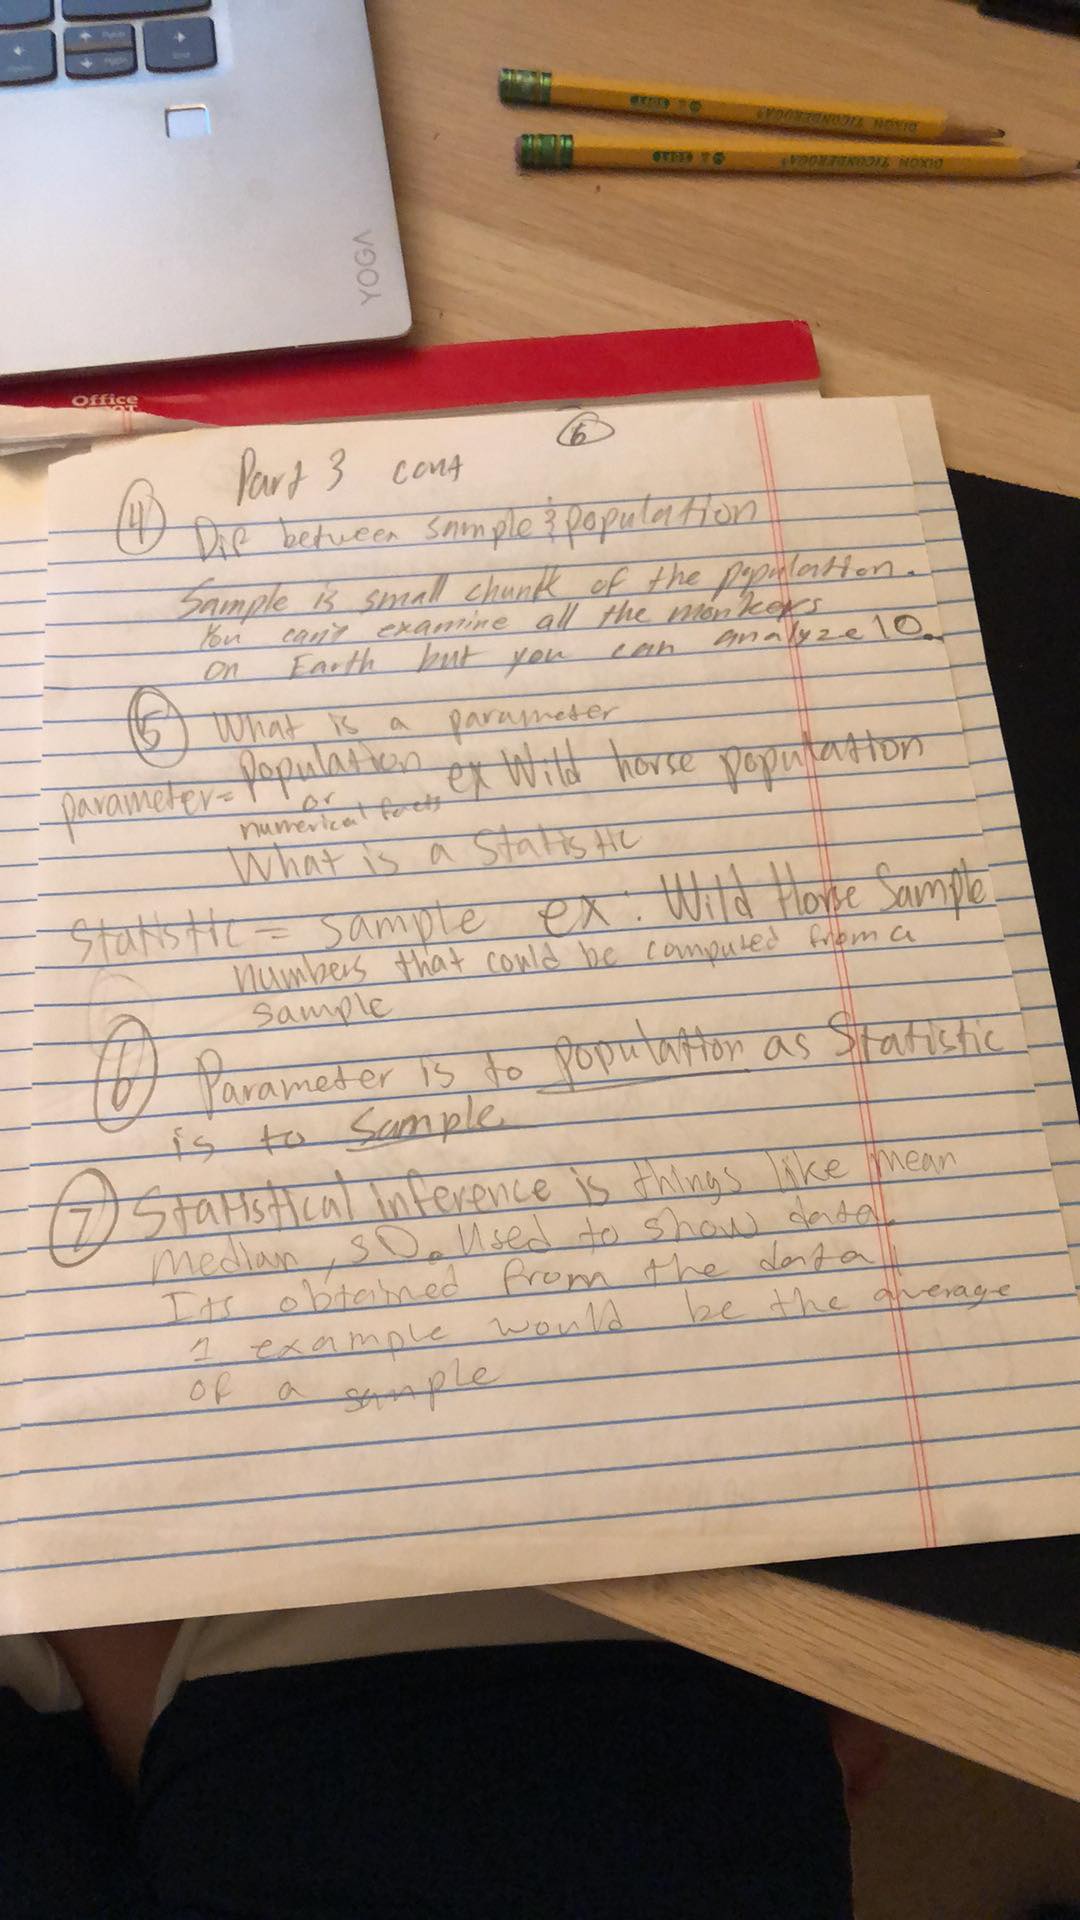 YOGA
DIXON TICONDEROGA
DIXON TICONDEROGA
Office
6
Part 3 cont
4 Dif between sample & population
Sample is small chunk of the population.
You can't examine all the monkeys
on Earth but you can analyze 10.
5 What is a parameter
parameter = population ex Wild horse population
or
numerical facts
What is a Statistic
Statistic = sample ex: Wild Horse Sample
numbers that could be computed from a
sample
6 Parameter is to population as Statistic
is to Sample
7 Statistical Inference is things like mean
median, SD. Used to show data.
Its obtained from the data
1 example would be the average
of a sample